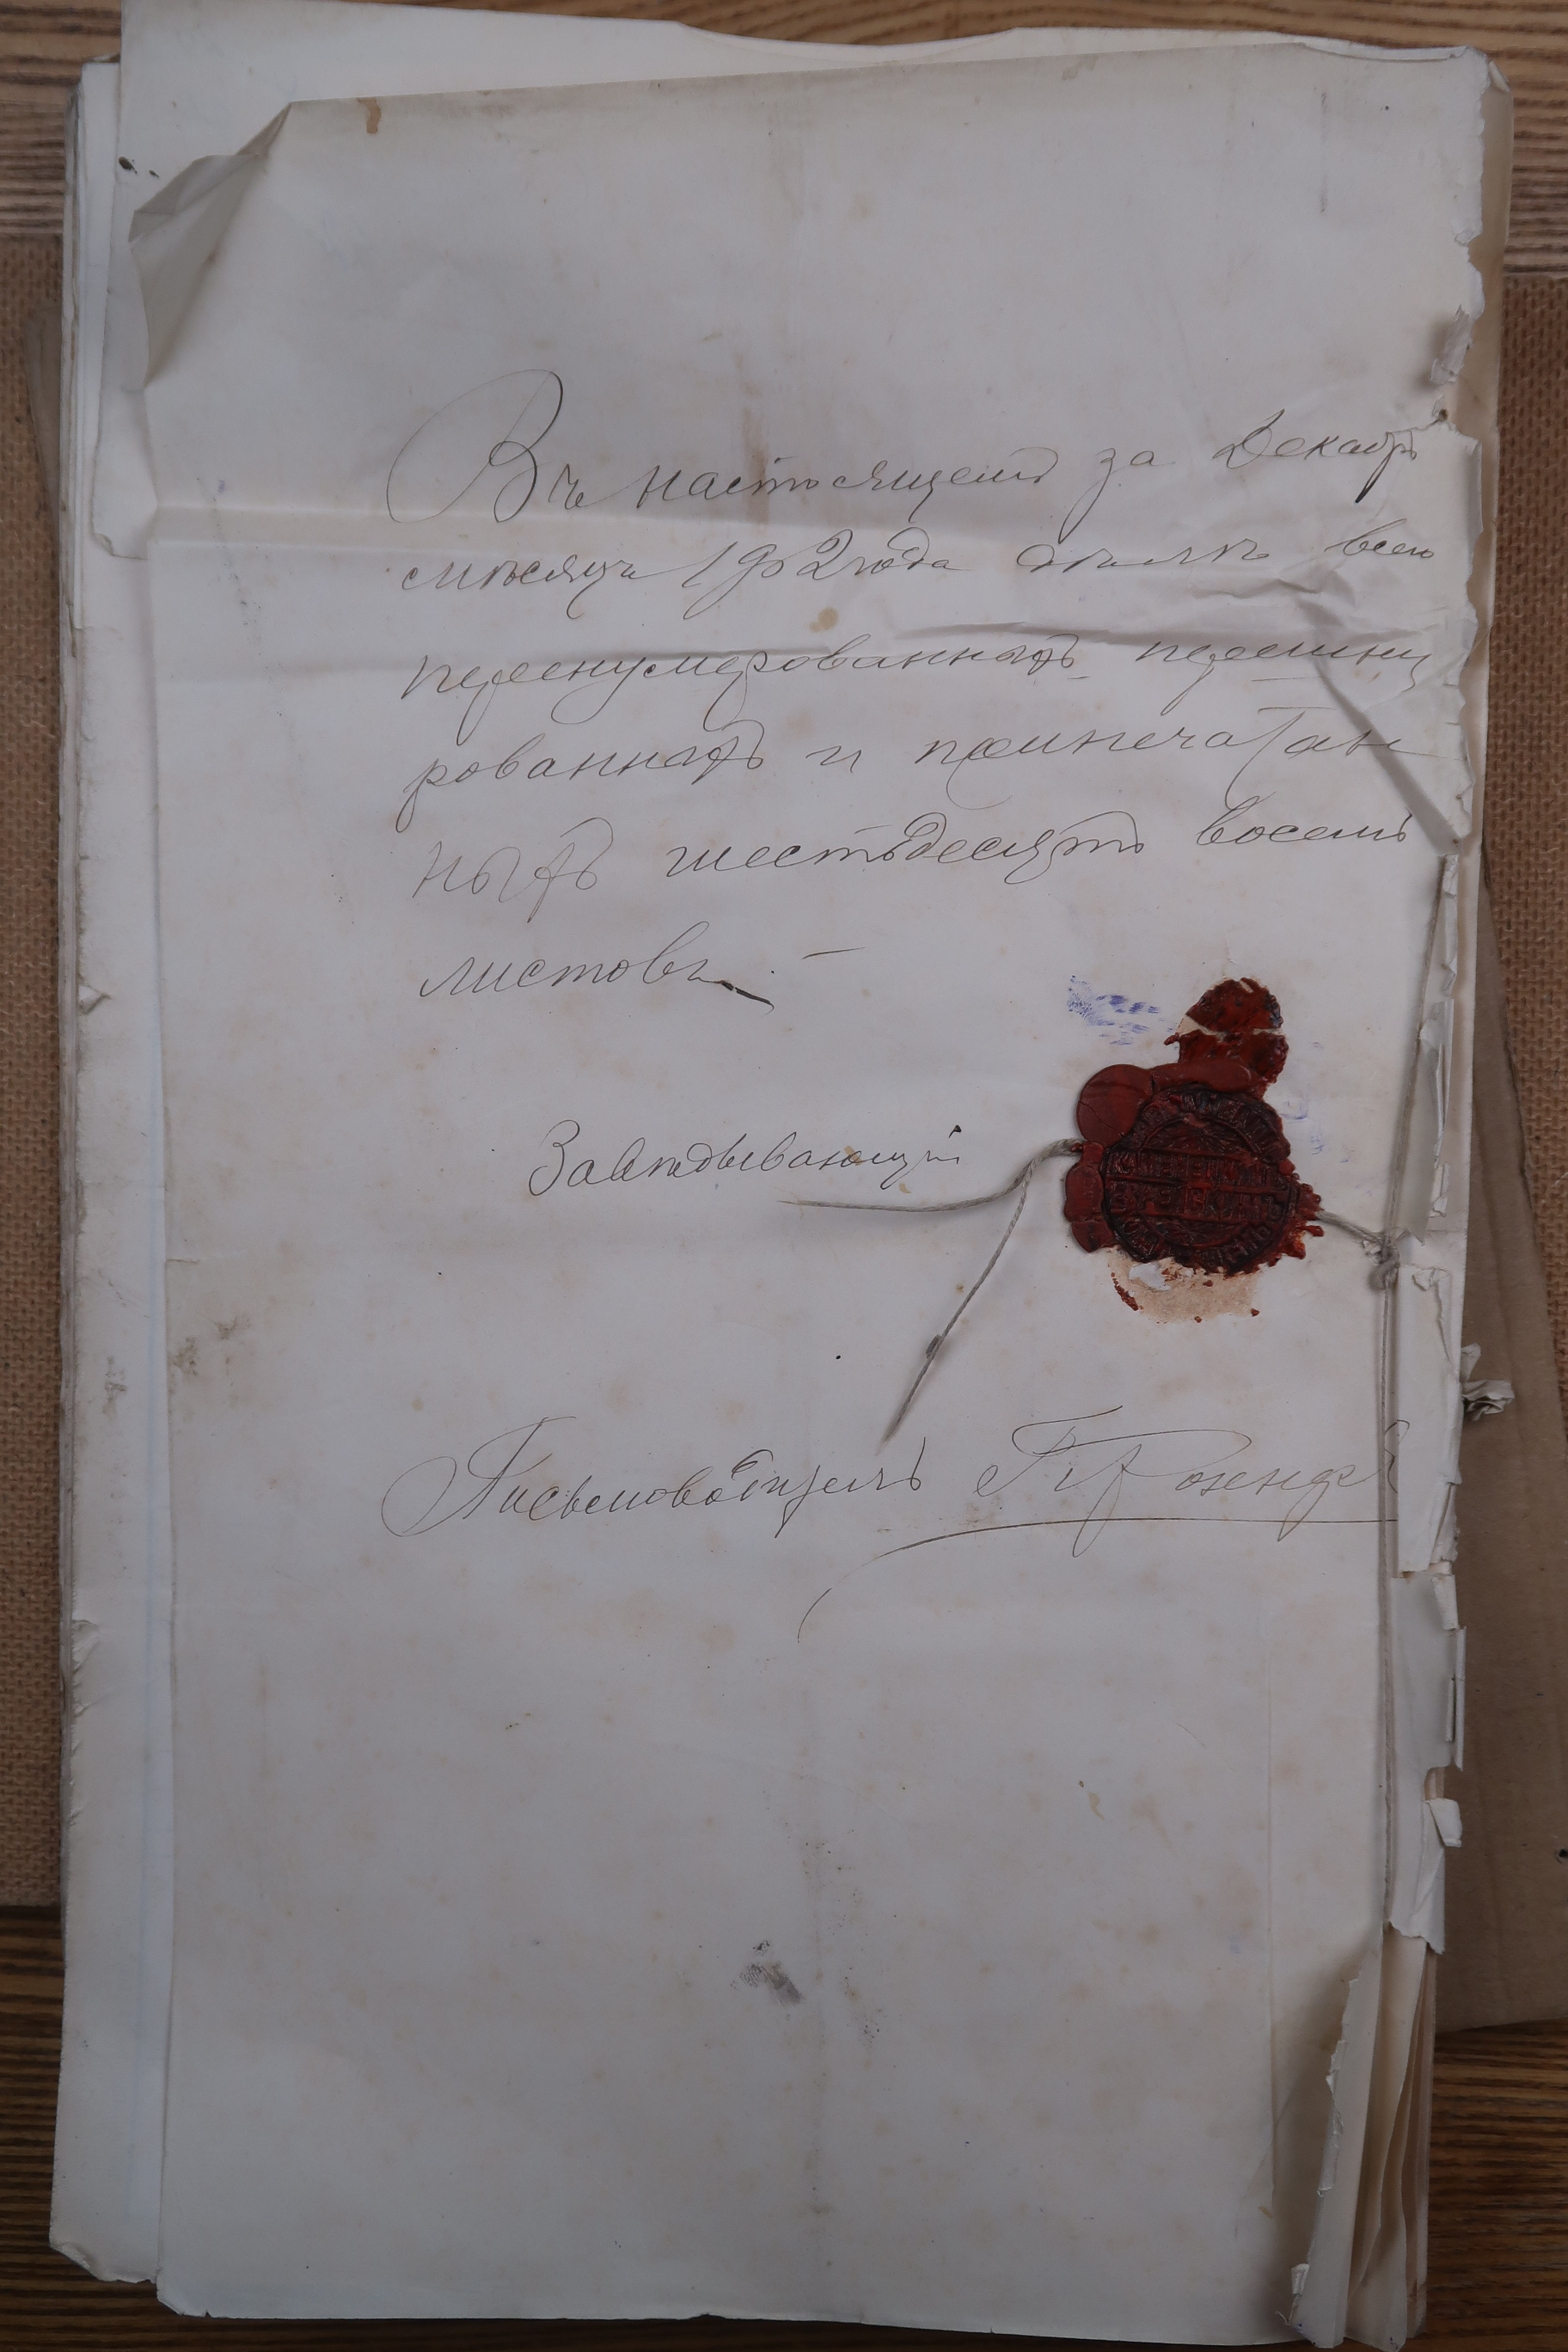 Въ настоящемъ за Декабрь
мѣсяцъ 1902 года дѣлѣ всего
перенумерованныхъ, перешну
рованныхъ и припечатан
ныхъ шестьдесятъ восемь
листовъ. —
Завѣдывающій
Письмоводитель